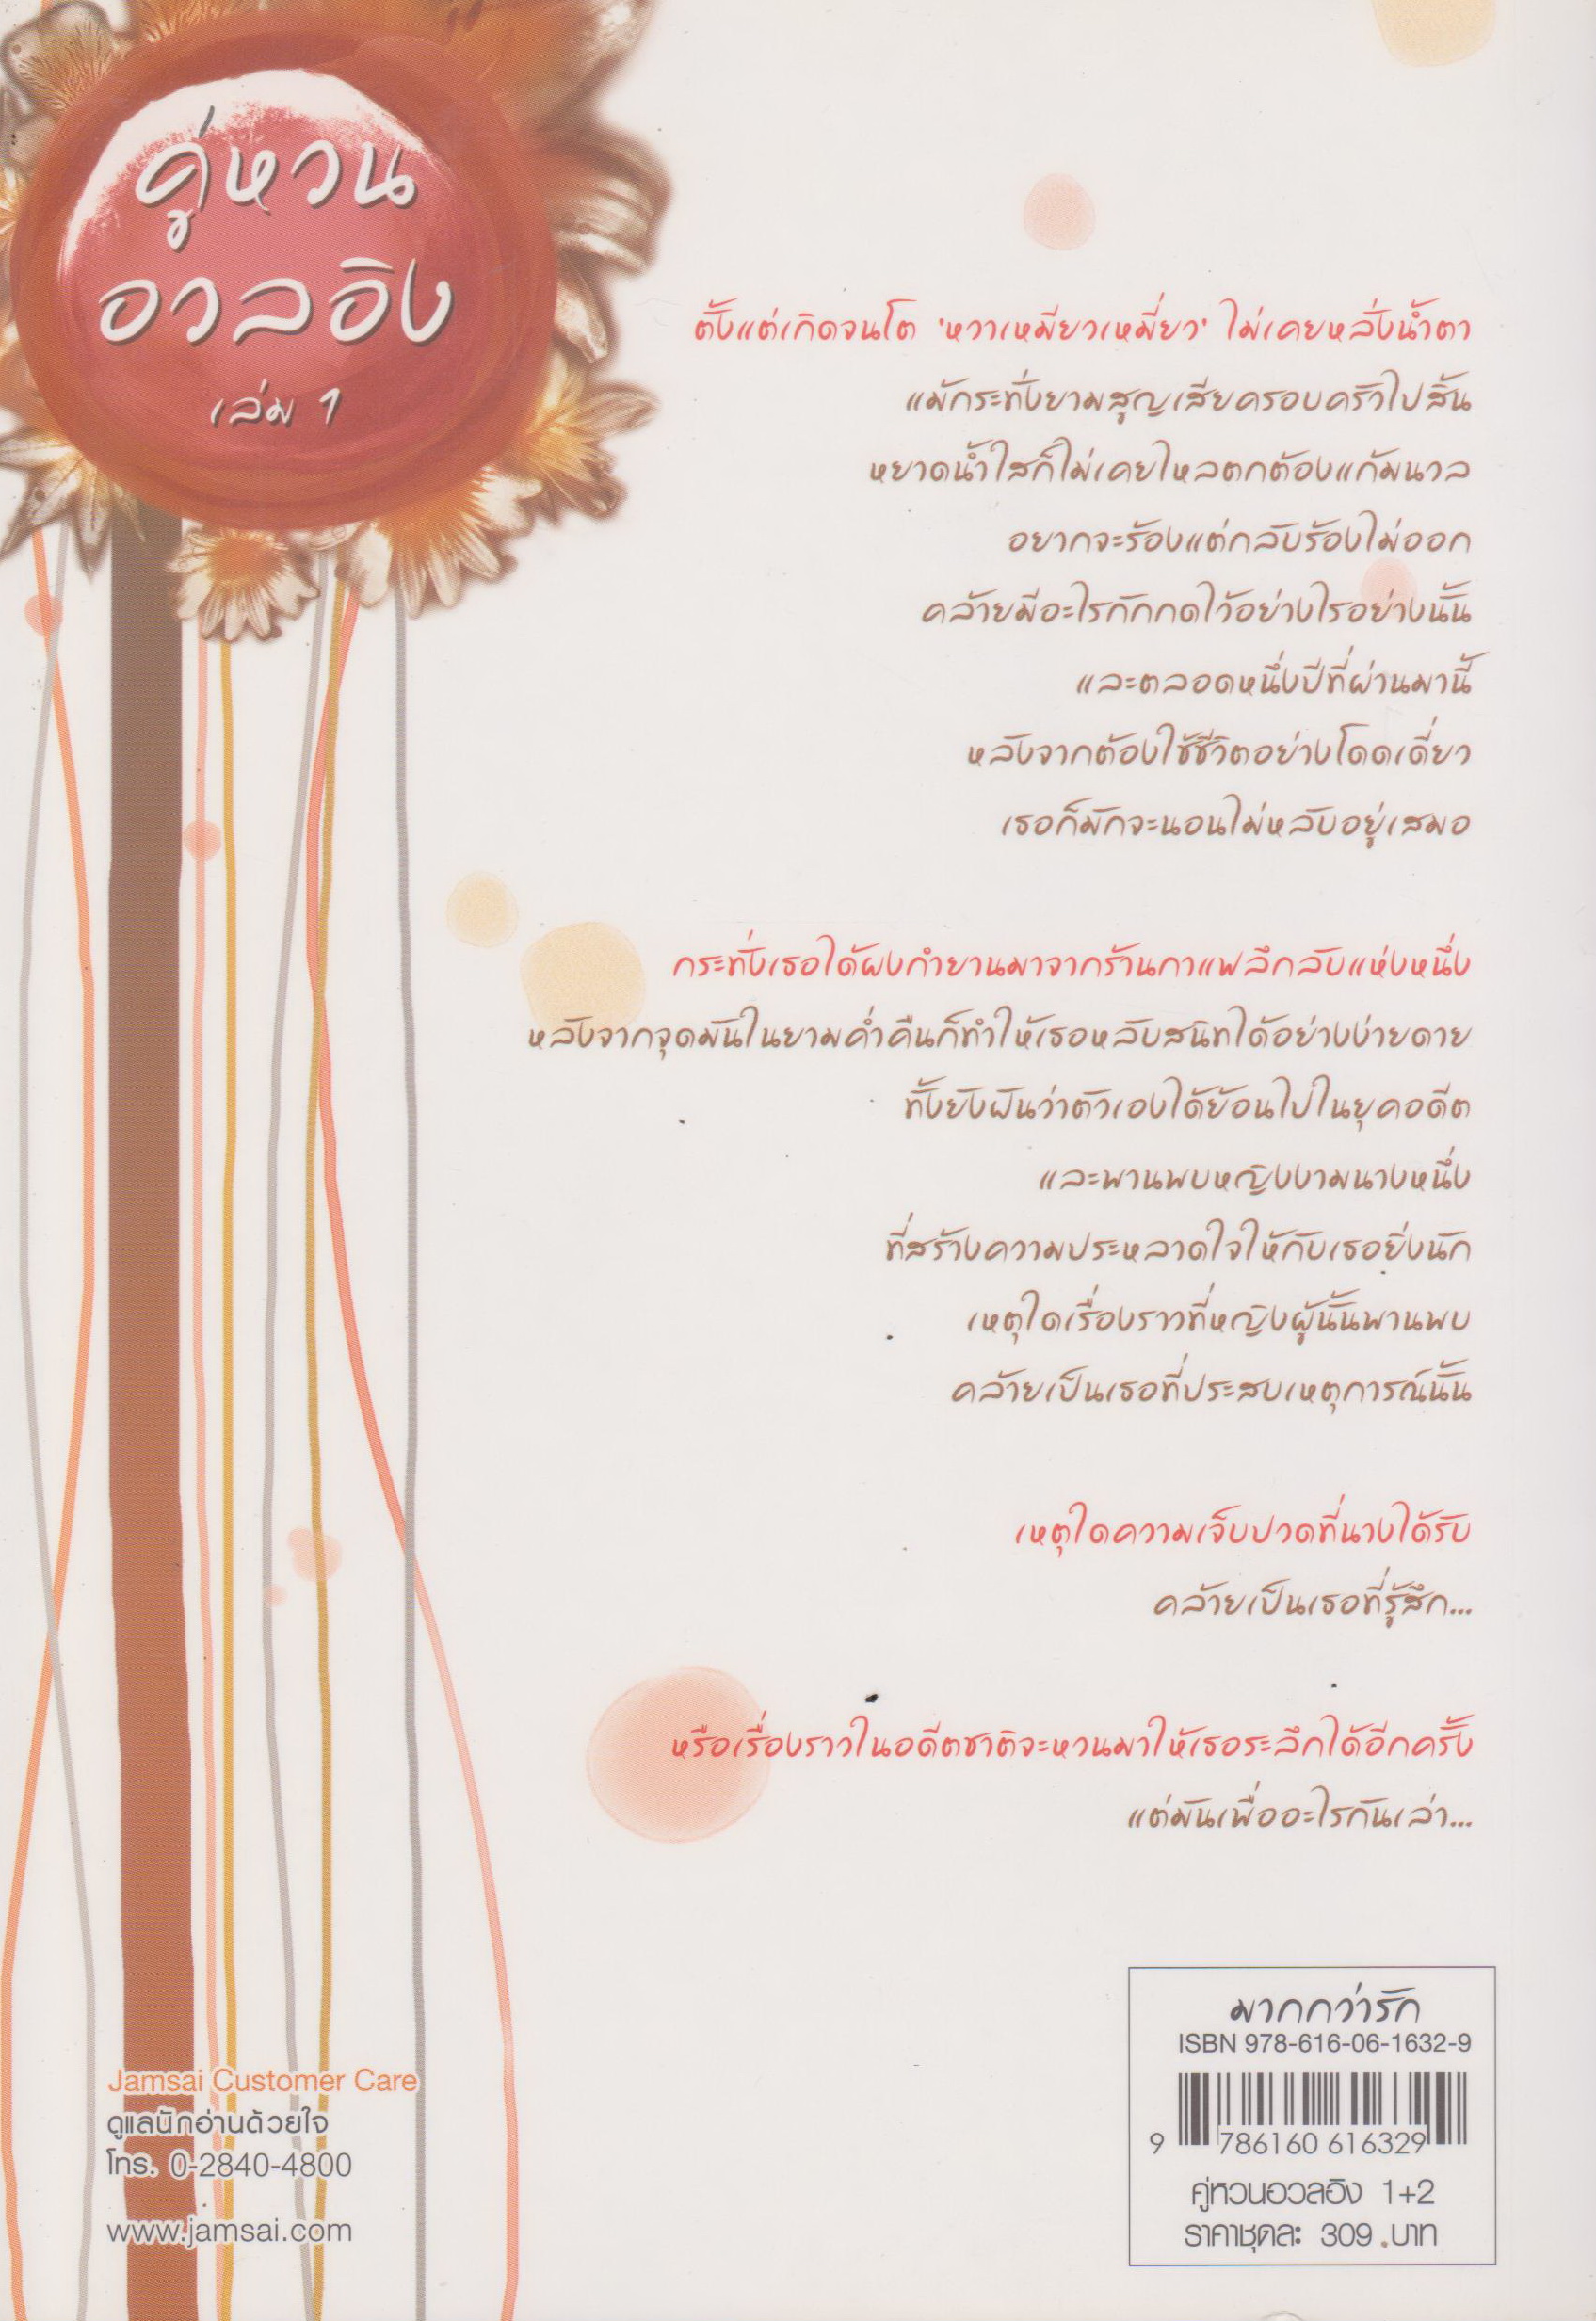 คู่หวน
อวลอิง
เล่ม 1
ตั้งแต่เกิดจนโต 'หวาเหมียวเหมี่ยว' ไม่เคยหลั่งน้ำตา
แม้กระทั่งยามสูญเสียครอบครัวไปสิ้น
หยาดน้ำใสก็ไม่เคยไหลตกต้องแก้มนวล
อยากจะร้องแต่กลับร้องไม่ออก
คล้ายมีอะไรกักกดไว้อย่างไรอย่างนั้น
และตลอดหนึ่งปีที่ผ่านมานี้
หลังจากต้องใช้ชีวิตอย่างโดดเดี่ยว
เธอก็มักจะนอนไม่หลับอยู่เสมอ
กระทั่งเธอได้ผงกำยานมาจากร้านกาแฟลึกลับแห่งหนึ่ง
หลังจากจุดมันในยามค่ำคืนก็ทำให้เธอหลับสนิทได้อย่างง่ายดาย
ทั้งยังฝันว่าตัวเองได้ย้อนไปในยุคอดีต
และพานพบหญิงงามนางหนึ่ง
ที่สร้างความประหลาดใจให้กับเธอยิ่งนัก
เหตุใดเรื่องราวที่หญิงผู้นั้นพานพบ
คล้ายเป็นเธอที่ประสบเหตุการณ์นั้น
เหตุใดความเจ็บปวดที่นางได้รับ
คล้ายเป็นเธอที่รู้สึก...
หรือเรื่องราวในอดีตชาติจะหวนมาให้เธอระลึกได้อีกครั้ง
แต่มันเพื่ออะไรกันเล่า...
มากกว่ารัก
ISBN 978-616-06-1632-9
9 786160 616329
คู่หวนอวลอิง 1+2
ราคาชุดละ 309 บาท
Jamsai Customer Care
ดูแลนักอ่านด้วยใจ
โทร. 0-2840-4800
www.jamsai.com